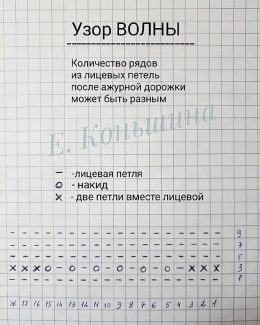 Узор ВОЛНЫ
Количество рядов
из лицевых петель
после ажурной дорожки
может быть разным
Е. Коньшина
– -лицевая петля
о - накид
х - две петли вместе лицевой
- - - - - - - - - - - - - - - - - - 9
- - - - - - - - - - - - - - - - - - 7
- - - - - - - - - - - - - - - - - - 5
х х х о - о - о - о - о - о - х х х 3
- - - - - - - - - - - - - - - - - - 1
18 17 16 15 14 13 12 11 10 9 8 7 6 5 4 3 2 1